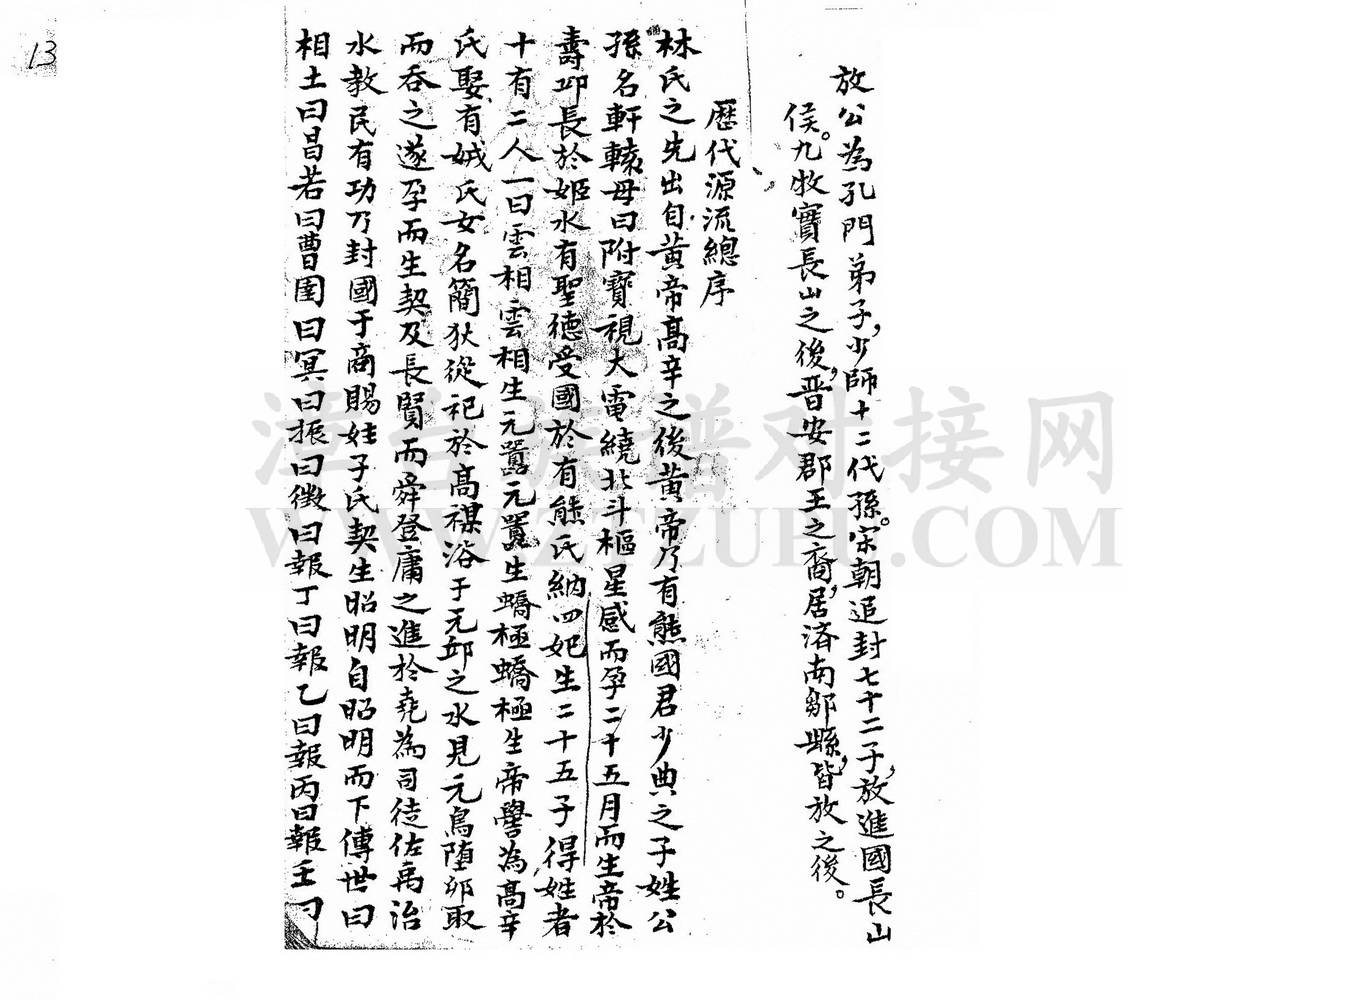 13
放公為孔門弟子，少師十二代孫。宋朝追封七十二子，放進國長山
侯。九牧寶長山之後，晋安郡王之裔，居济南鄒縣，皆放之後。
歷代源流總序
林氏之先出自黃帝高辛之後黃帝乃有熊國君少典之子姓公
孫名軒轅母曰附寶視大電繞北斗樞星感而孕二十五月而生帝於
壽邱長於姬水有聖德受國於有熊氏納四妃生二十五子得姓者
十有二人一曰雲相雲相生元囂元囂生蟜極蟜極生帝嚳為高辛
氏娶有娀氏女名簡狄從祀於高禖浴于元邱之水見元鳥堕卵取
而吞之遂孕而生契及長賢而舜登庸之進於堯為司徒佐禹治
水教民有功乃封國于商賜姓子氏契生昭明自昭明而下傳世曰
相土曰昌若曰曹圉曰冥曰振曰微曰報丁曰報乙曰報丙曰報壬曰
漳台族谱对接网
WWW.ZTZUPU.COM